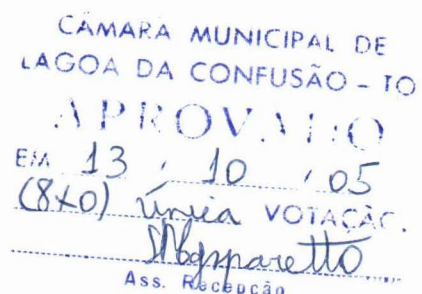 CÂMARA MUNICIPAL DE
LAGOA DA CONFUSÃO - TO
APROVADO
EM 13 / 10 / 05
(8x0) única VOTAÇÃO.
Ass. Recepção